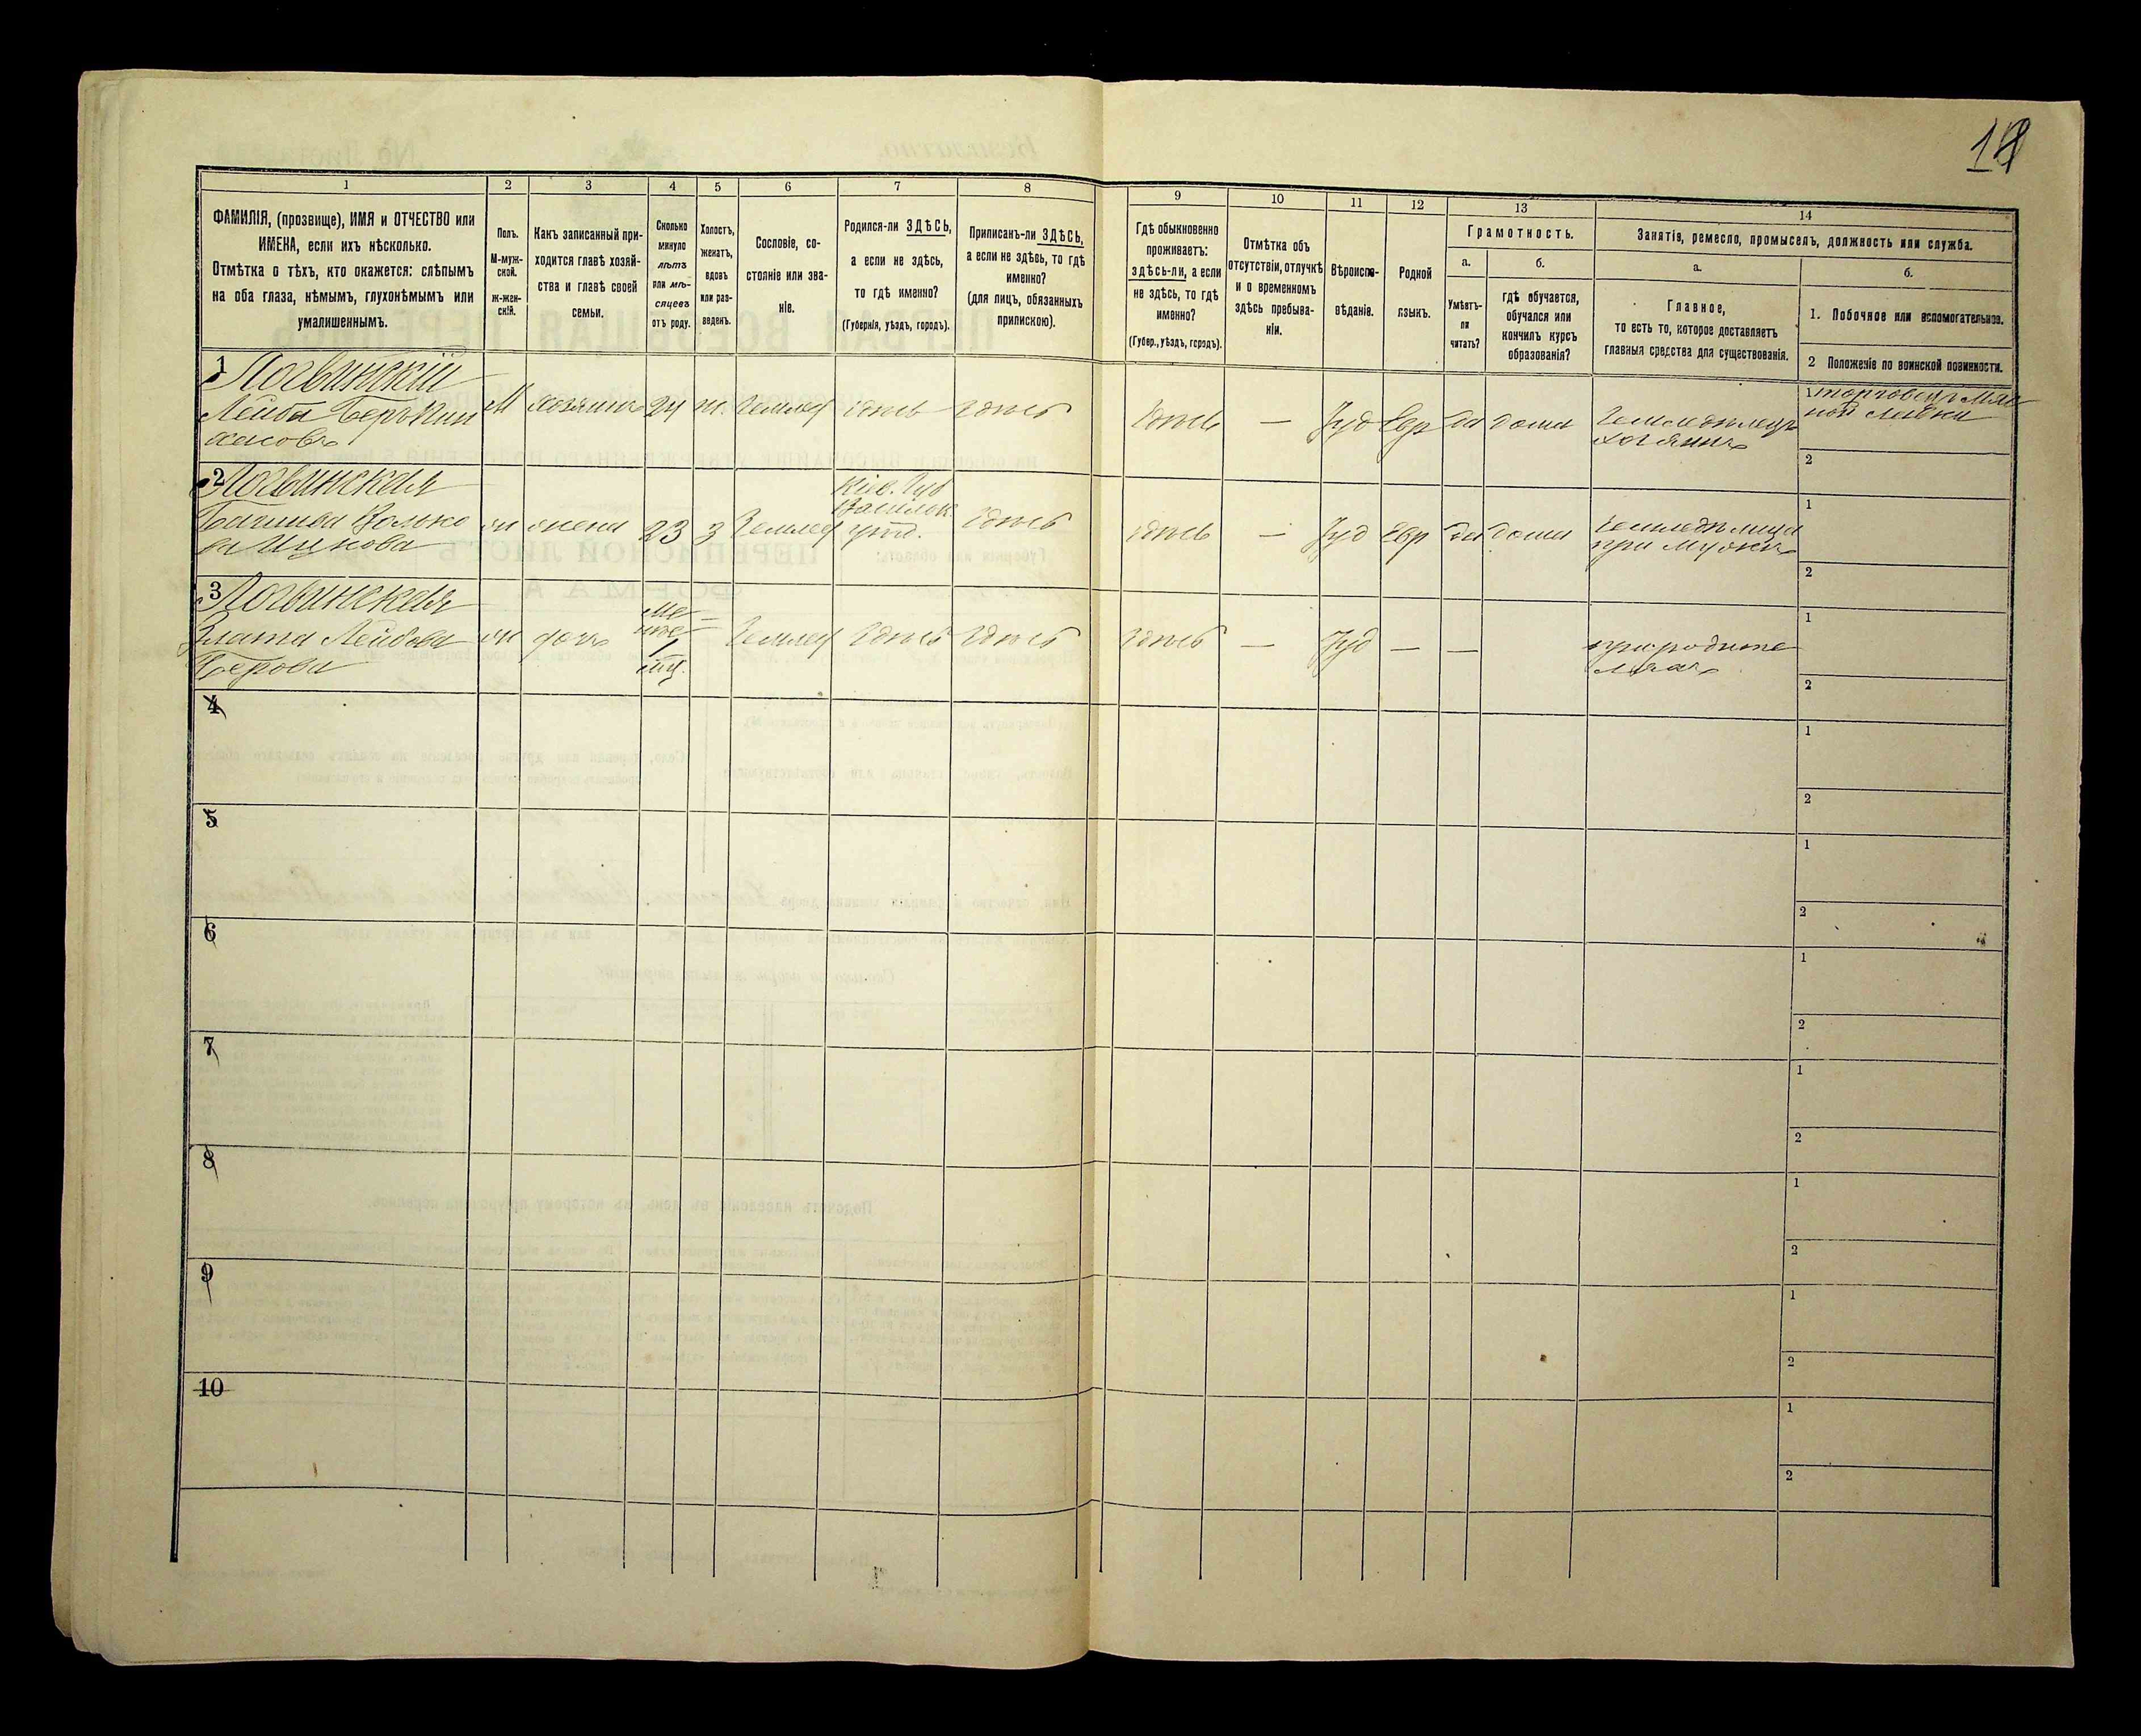 18
1
2
3
4
5
6
7
8
9
10
11
12
13
14
ФАМИЛІЯ, (прозвище), ИМЯ и ОТЧЕСТВО или
ИМЕНА, если ихъ нѣсколько.
Отмѣтка о тѣхъ, кто окажется: слѣпымъ
на оба глаза, нѣмымъ, глухонѣмымъ или
умалишеннымъ.
Полъ.
М-муж-
ской.
ж-жен-
скій.
Какъ записанный при-
ходится главѣ хозяй-
ства и главѣ своей
семьи.
Сколько
минуло
лѣтъ
или мѣ-
сяцевъ
отъ роду.
Холостъ,
женатъ,
вдовъ
или раз-
веденъ.
Сословіе, со-
стояніе или зва-
ніе.
Родился-ли ЗДѢСЬ,
а если не здѣсь,
то гдѣ именно?
(Губернія, уѣздъ, городъ).
Приписанъ-ли ЗДѢСЬ,
а если не здѣсь, то гдѣ
именно?
(для лицъ, обязанныхъ
припискою).
Гдѣ обыкновенно
проживаетъ:
здѣсь-ли, а если
не здѣсь, то гдѣ
именно?
(Губер., уѣздъ, городъ).
Отмѣтка объ
отсутствіи, отлучкѣ
и о временномъ
здѣсь пребыва-
ніи.
Вѣроиспо-
вѣданіе.
Родной
языкъ.
Грамотность.
а.
Умѣетъ-
ли
читать?
б.
гдѣ обучается,
обучался или
кончилъ курсъ
образованія?
Занятія, ремесло, промыселъ, должность или служба.
а.
Главное,
то есть то, которое доставляетъ
главныя средства для существованія.
б.
1. Побочное или вспомогательное.
2 Положеніе по воинской повинности.
1
Логвинскій
Лейба Беръ
М
хозяинъ
24
ж.
Землед
здѣсь
здѣсь
здѣсь
—
Іуд
Евр
да
дома
Земледѣлецъ
хозяинъ
1
торговецъ
ной лавки
2
2
Логвинская
жена
23
з
Землед
Кіев. Губ
уѣзд.
здѣсь
здѣсь
—
Іуд
Евр
да
дома
при мужѣ
1
2
3
Логвинская
Злата Лейбова
Берова
дочь
1
мѣц.
Землед
здѣсь
здѣсь
здѣсь
—
Іуд
—
—
при родите
ляхъ
1
2
4
1
2
5
1
2
6
1
2
7
1
2
8
1
2
9
1
2
10
1
2